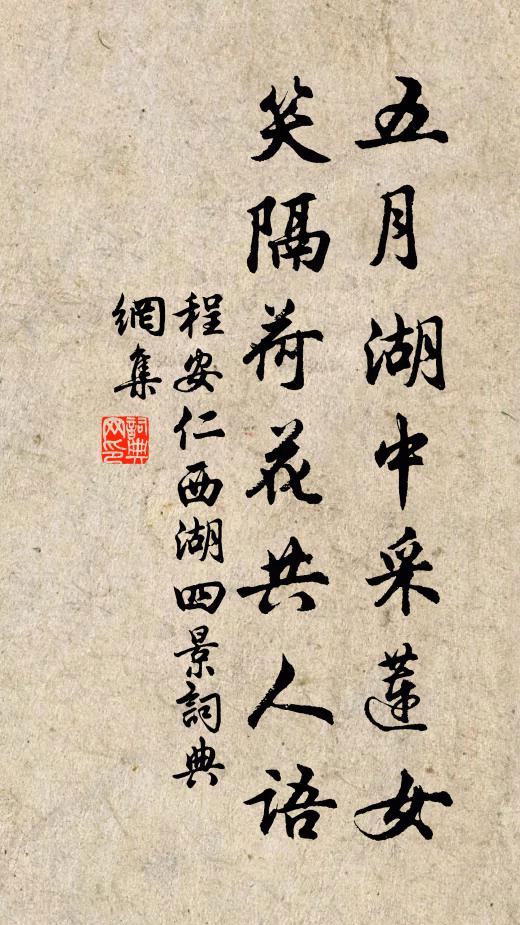 五月湖中采蓮女
笑隔荷花共人語
程安仁西湖四景詞典
網集
詞典
网印